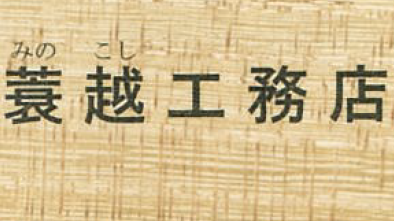 みの こし
蓑越工務店